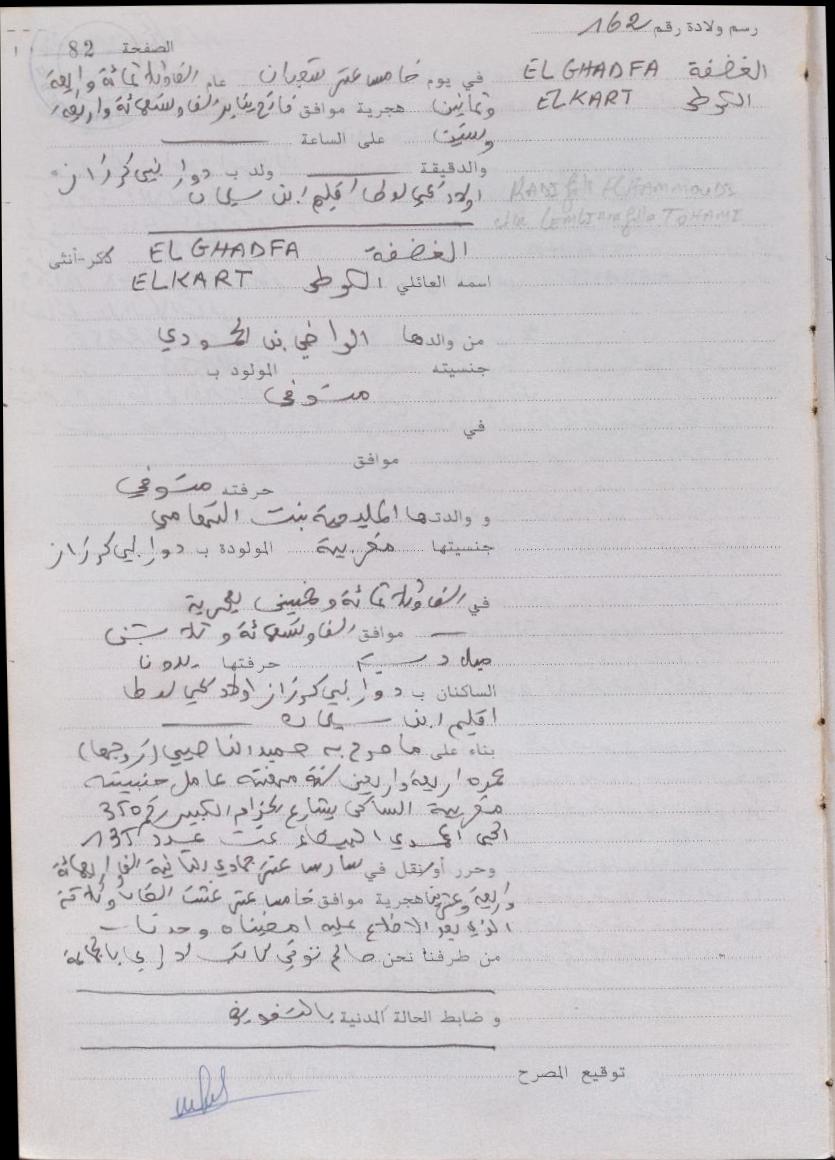 رسم ولادة رقم 162
الصفحة 82
الغضفة EL GHADFA
الكرطي ELKART
في يوم خامس عشر شعبان عام الف وثلاثمائة واربعة
وثمانين هجرية موافق فاتح يناير الف وتسعمائة واربعة
وستين على الساعة
والدقيقة ولد ب دوار
اولاد اقليم ابن سليمان
الغضفة EL GHADFA ذكر-أنثى
اسمه العائلي الكرطي ELKART
من والدها الراضي بن
جنسيته المولود ب
متوفي
في
موافق
حرفته متوفي
و والدتها بنت التهامي
جنسيتها مغربية المولودة ب دوار
في الف وثلاثمائة وخمسين هجرية
موافق الف وتسعمائة و
حرفتها بدونا
الساكنان ب دوار اولاد
اقليم ابن سليمان
بناء على ما صرح به حميد الناصيي (زوجها)
عمره اربعة واربعين سنة مهنته عامل جنسيته
مغربية الساكن بشارع الكبير رقم 350
الحي المحمدي البيضاء تحت عدد 135
وحرر أو نقل في سادس عشر جمادى الثانية الف واربعمائة
واربعة وعشرين هجرية موافق خامس عشر غشت الفان وثلاثة
الذي بعد الاطلاع عليه امضيناه وحدنا
من طرفنا نحن صالح
و ضابط الحالة المدنية بالتفويض
توقيع المصرح